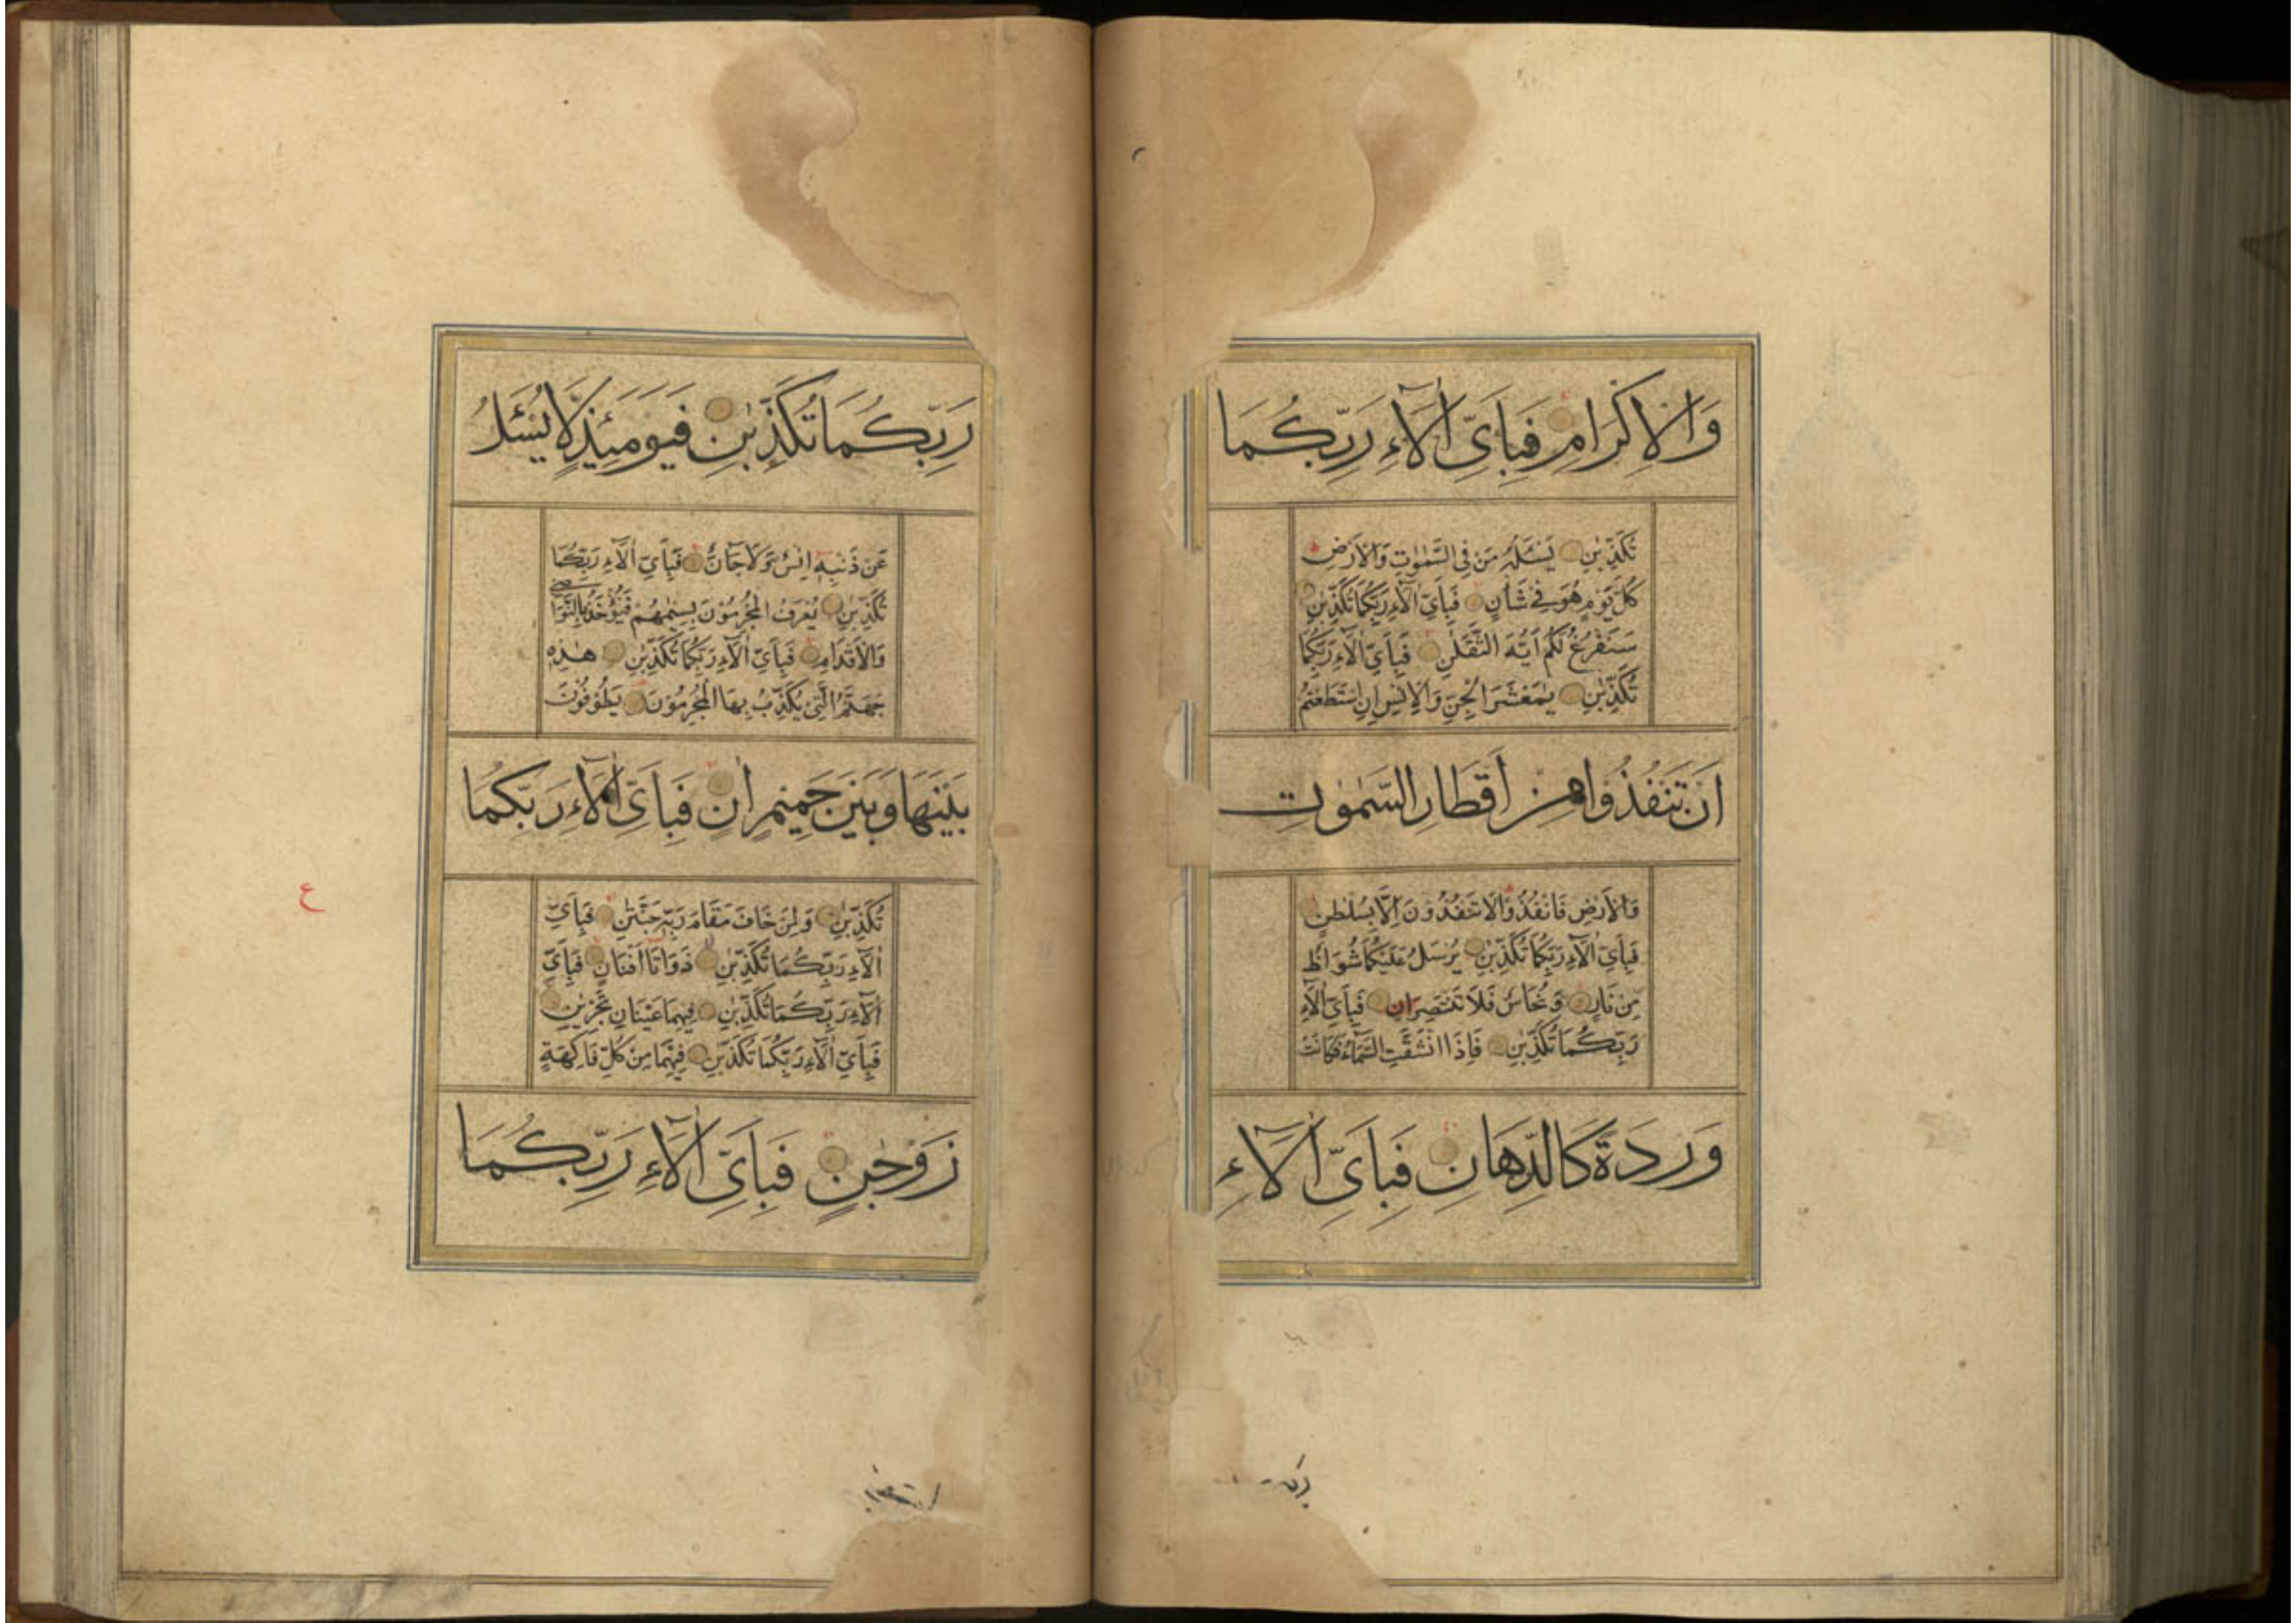 وَالْاِكْرَامِ فَبِاَىِّ اٰلَآءِ رَبِّكُمَا
تُكَذِّبٰنِ يَسْـَٔلُهُ مَنْ فِى السَّمٰوٰتِ وَالْاَرْضِ
كُلَّ يَوْمٍ هُوَ فِى شَاْنٍ فَبِاَىِّ اٰلَآءِ رَبِّكُمَا تُكَذِّبٰنِ
سَنَفْرُغُ لَكُمْ اَيُّهَ الثَّقَلٰنِ فَبِاَىِّ اٰلَآءِ رَبِّكُمَا
تُكَذِّبٰنِ يٰمَعْشَرَ الْجِنِّ وَالْاِنْسِ اِنِ اسْتَطَعْتُمْ
اَنْ تَنْفُذُوا مِنْ اَقْطَارِ السَّمٰوٰتِ
وَالْاَرْضِ فَانْفُذُوا لَا تَنْفُذُونَ اِلَّا بِسُلْطٰنٍ
فَبِاَىِّ اٰلَآءِ رَبِّكُمَا تُكَذِّبٰنِ يُرْسَلُ عَلَيْكُمَا شُوَاظٌ
مِنْ نَارٍ وَنُحَاسٌ فَلَا تَنْتَصِرَانِ فَبِاَىِّ اٰلَآءِ
رَبِّكُمَا تُكَذِّبٰنِ فَاِذَا انْشَقَّتِ السَّمَآءُ فَكَانَتْ
وَرْدَةً كَالدِّهَانِ فَبِاَىِّ اٰلَآءِ
رَبِّكُمَا تُكَذِّبٰنِ فَيَوْمَئِذٍ لَّا يُسْـَٔلُ
عَنْ ذَنْبِهِ اِنْسٌ وَلَا جَآنٌّ فَبِاَىِّ اٰلَآءِ رَبِّكُمَا
تُكَذِّبٰنِ يُعْرَفُ الْمُجْرِمُوْنَ بِسِيْمٰهُمْ فَيُؤْخَذُ بِالنَّوَاصِى
وَالْاَقْدَامِ فَبِاَىِّ اٰلَآءِ رَبِّكُمَا تُكَذِّبٰنِ هٰذِهِ
جَهَنَّمُ الَّتِى يُكَذِّبُ بِهَا الْمُجْرِمُوْنَ يَطُوْفُوْنَ
بَيْنَهَا وَبَيْنَ حَمِيْمٍ اٰنٍ فَبِاَىِّ اٰلَآءِ رَبِّكُمَا
تُكَذِّبٰنِ وَلِمَنْ خَافَ مَقَامَ رَبِّهٖ جَنَّتٰنِ فَبِاَىِّ
اٰلَآءِ رَبِّكُمَا تُكَذِّبٰنِ ذَوَاتَا اَفْنَانٍ فَبِاَىِّ
اٰلَآءِ رَبِّكُمَا تُكَذِّبٰنِ فِيْهِمَا عَيْنَانِ تَجْرِيٰنِ
فَبِاَىِّ اٰلَآءِ رَبِّكُمَا تُكَذِّبٰنِ فِيْهِمَا مِنْ كُلِّ فَاكِهَةٍ
زَوْجٰنِ فَبِاَىِّ اٰلَآءِ رَبِّكُمَا
ع